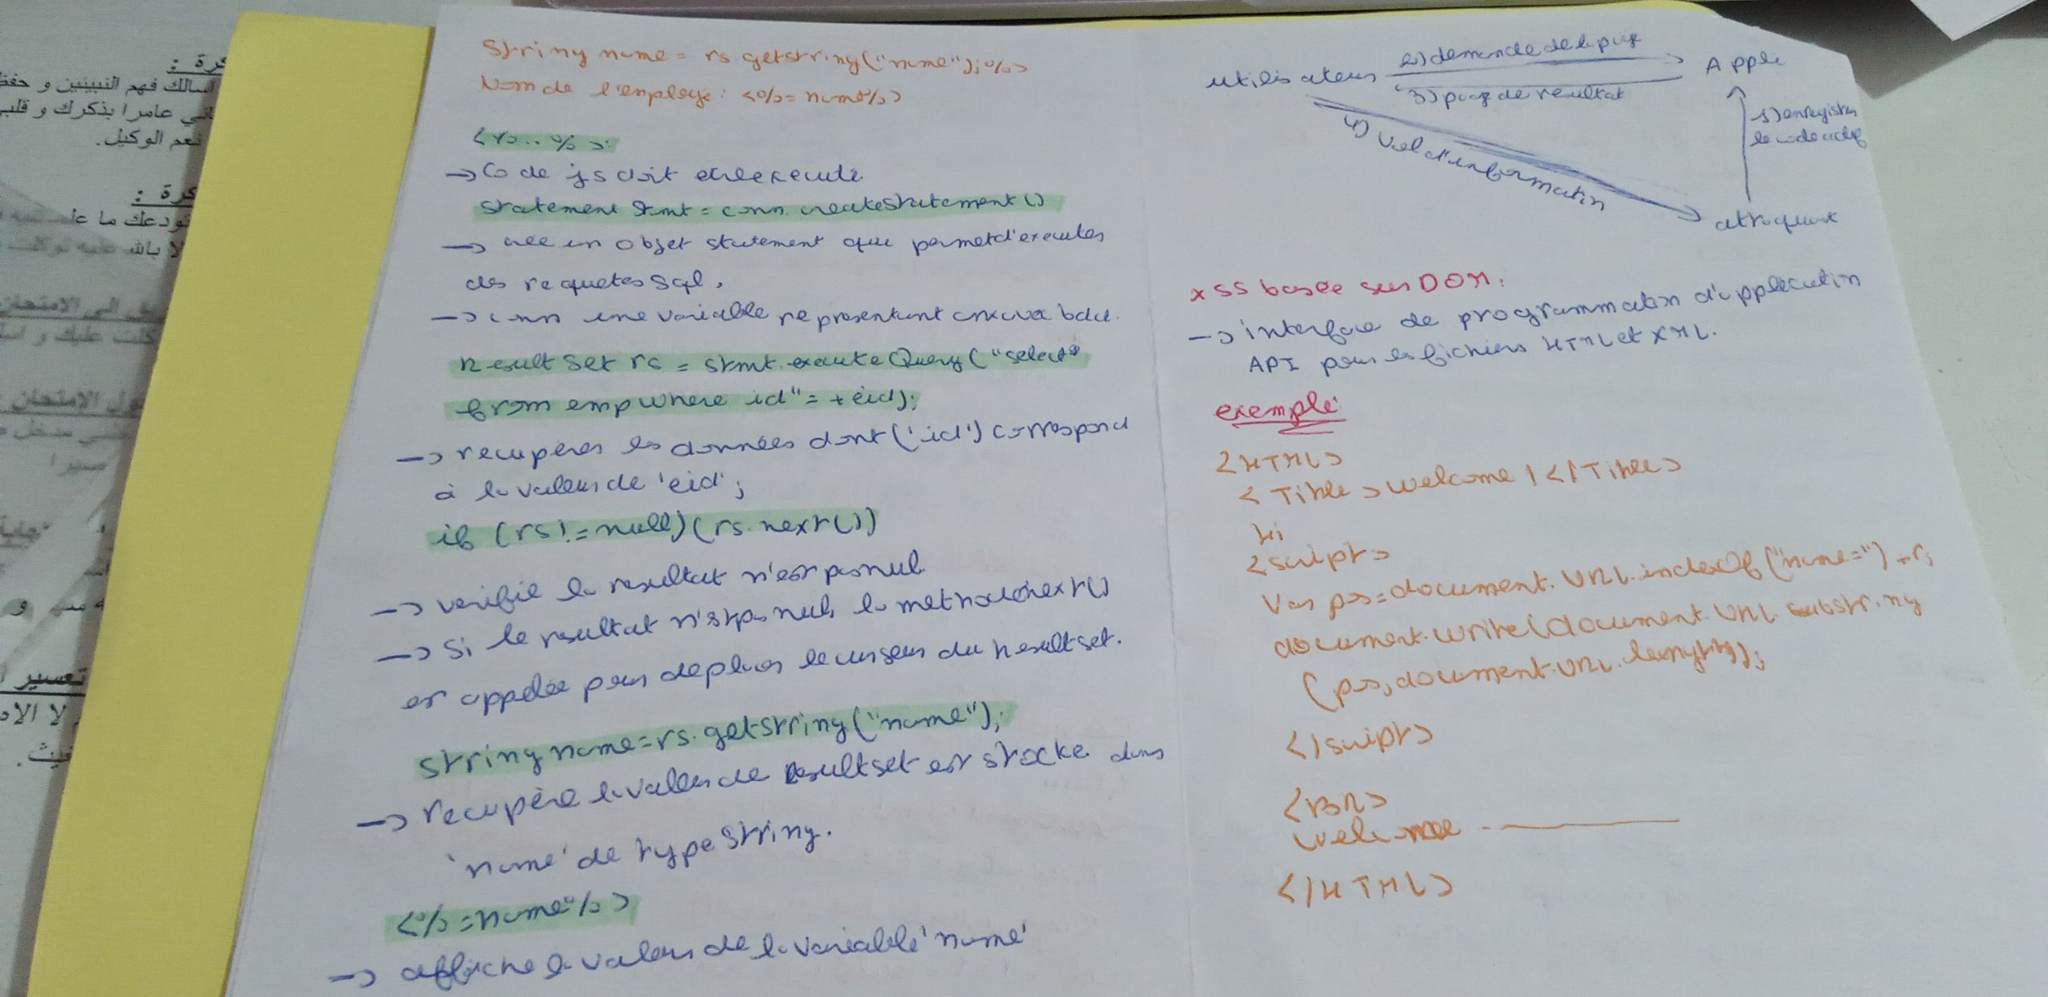 String name = rs.getstring("name");%>
Nom de l'employé: <%= name%>
<%...%>:
→ Code js doit etre executé
statement stmt = conn.createstatement()
→ crée un objet statement que permet d'executer
des requetes sql.
→ conn une variable representant cnx va bdd.
Result set rs = stmt.executeQuery("select*
from emp where id"= +eid);
→ recupérer les données dont ('id') correspond
à la valeur de 'eid';
if (rs!=null)(rs.next())
→ verifie le resultat n'est pas nul
→ Si le resultat n'est pas nul, la methode next()
est appelée pour deplacer le curseur du Resultset.
string name=rs.getstring("name");
→ recupère la valeur de Resultset est stocke dans
'name' de type String.
<%=name%>
→ affiche la valeur de la variable 'name'
utilisateur
2) demande de la page
Appli
3) page de resultat
4) Vol d'information
1) enregistrer
le code
attaquant
XSS basée sur DOM:
→ interface de programmation d'application
API pour les fichiers HTML et XML.
exemple:
<HTML>
<Title>welcome!</Title>
Hi
<script>
Var pos=document.URL.indexOf("name=")
document.write(document.URL.substring
(pos,document.URL.length));
</script>
<BR>
Welcome
</HTML>
كرة :
اسالك فهم النبيين و حفظ
عامرا بذكرك و قلب
نعم الوكيل.
كرة :